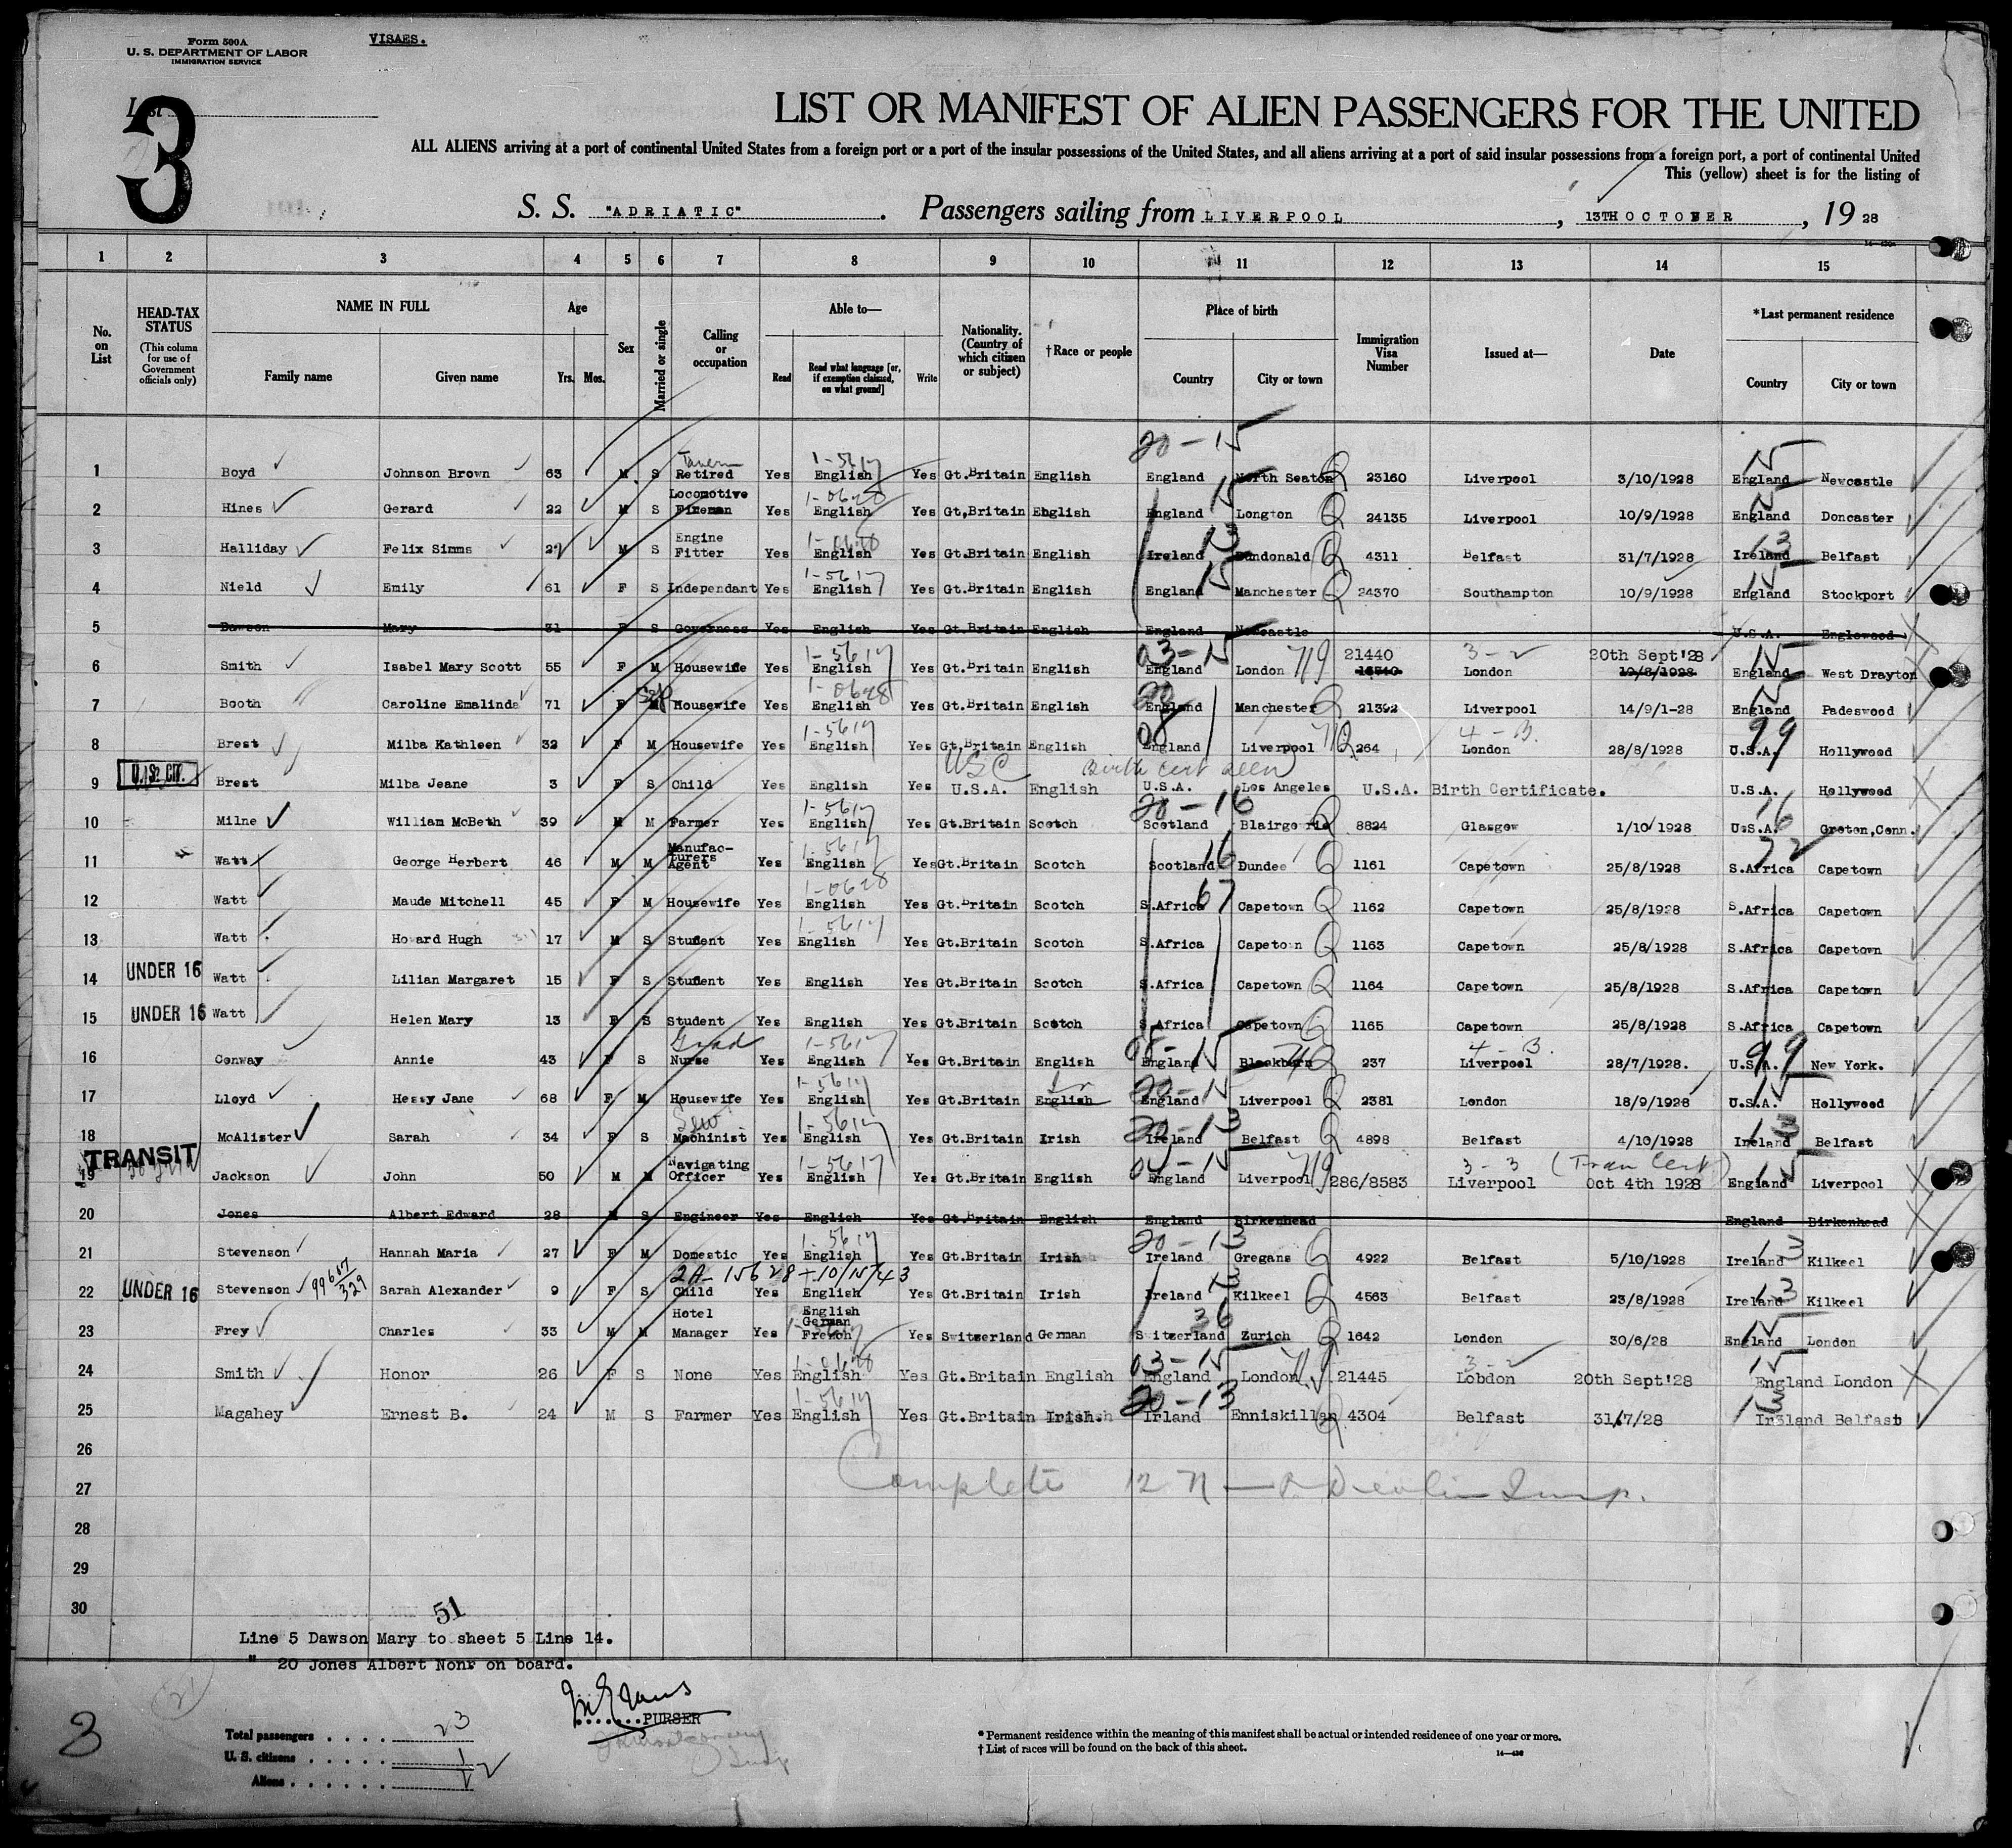 Form 500A
U. S. DEPARTMENT OF LABOR
IMMIGRATION SERVICE
VISAES.
List
3
LIST OR MANIFEST OF ALIEN PASSENGERS FOR THE UNITED
ALL ALIENS arriving at a port of continental United States from a foreign port or a port of the insular possessions of the United States, and all aliens arriving at a port of said insular possessions from a foreign port, a port of continental United
This (yellow) sheet is for the listing of
S. S. "ADRIATIC". Passengers sailing from LIVERPOOL, 13TH OCTOBER, 19 28
1 2 3 4 5 6 7 8 9 10 11 12 13 14 15
No. on List
HEAD-TAX STATUS
(This column for use of Government officials only)
NAME IN FULL
Family name Given name
Age
Yrs. Mos.
Sex
Married or single
Calling or occupation
Able to—
Read
Read what language [or, if exemption claimed, on what ground]
Write
Nationality. (Country of which citizen or subject)
†Race or people
Place of birth
Country City or town
Immigration Visa Number
Issued at—
Date
*Last permanent residence
Country City or town
20 - 15
1 Boyd Johnson Brown 63 M S Retired Yes English Yes Gt.Britain English England North Seaton 23160 Liverpool 3/10/1928 England Newcastle
2 Hines Gerard 22 M S Locomotive Fireman Yes English Yes Gt,Britain English England Longton 24135 Liverpool 10/9/1928 England Doncaster
3 Halliday Felix Simms M S Engine Fitter Yes English Yes Gt.Britain English Ireland Dundonald 4311 Belfast 31/7/1928 Ireland Belfast
4 Nield Emily 61 F S Independant Yes English Yes Gt.Britain English England Manchester 24370 Southampton 10/9/1928 England Stockport
5 Dawson Mary 31 F S Governess Yes English Yes Gt.Britain English England Newcastle U.S.A. Englewood
6 Smith Isabel Mary Scott 55 F M Housewife Yes English Yes Gt.Britain English England London 21440 London 20th Sept'28 England West Drayton
7 Booth Caroline Emalinda 71 F M Housewife Yes English Yes Gt.Britain English England Manchester 21392 Liverpool 14/9/1-28 England Padeswood
8 Brest Milba Kathleen 32 F M Housewife Yes English Yes Gt.Britain English England Liverpool 264 London 28/8/1928 U.S.A. Hollywood
U.S. CIT.
USC Birth Cert seen
9 Brest Milba Jeane 3 F S Child Yes English Yes U.S.A. English U.S.A. Los Angeles U.S.A. Birth Certificate. U.S.A. Hollywood
10 Milne William McBeth 39 M M Farmer Yes English Yes Gt.Britain Scotch Scotland Blairgowrie 8824 Glasgow 1/10/1928 U.S.A. Groton,Conn.
11 Watt George Herbert 46 M M Manufacturers Agent Yes English Yes Gt.Britain Scotch Scotland Dundee 1161 Capetown 25/8/1928 S.Africa Capetown
12 Watt Maude Mitchell 45 F M Housewife Yes English Yes Gt.Britain Scotch S.Africa Capetown 1162 Capetown 25/8/1928 S.Africa Capetown
13 Watt Howard Hugh 17 M S Student Yes English Yes Gt.Britain Scotch S.Africa Capetown 1163 Capetown 25/8/1928 S.Africa Capetown
14 UNDER 16 Watt Lilian Margaret 15 F S Student Yes English Yes Gt.Britain Scotch S.Africa Capetown 1164 Capetown 25/8/1928 S.Africa Capetown
15 UNDER 16 Watt Helen Mary 13 F S Student Yes English Yes Gt.Britain Scotch S.Africa Capetown 1165 Capetown 25/8/1928 S.Africa Capetown
16 Conway Annie 43 F S Nurse Yes English Yes Gt.Britain English England Blackburn 237 Liverpool 28/7/1928. U.S.A. New York.
17 Lloyd Hessy Jane 68 F M Housewife Yes English Yes Gt.Britain English England Liverpool 2381 London 18/9/1928 U.S.A. Hollywood
18 McAlister Sarah 34 F S Machinist Yes English Yes Gt.Britain Irish Ireland Belfast 4898 Belfast 4/10/1928 Ireland Belfast
TRANSIT
19 Jackson John 50 M M Navigating Officer Yes English Yes Gt.Britain English England Liverpool 286/8583 Liverpool Oct 4th 1928 England Liverpool
20 Jones Albert Edward 28 M S Engineer Yes English Yes Gt.Britain English England Birkenhead England Birkenhead
21 Stevenson Hannah Maria 27 F M Domestic Yes English Yes Gt.Britain Irish Ireland Gregans 4922 Belfast 5/10/1928 Ireland Kilkeel
2A-15628-10/15/43
22 UNDER 16 Stevenson Sarah Alexander 9 F S Child Yes English Yes Gt.Britain Irish Ireland Kilkeel 4563 Belfast 23/8/1928 Ireland Kilkeel
23 Frey Charles 33 M M Hotel Manager Yes English German French Yes Switzerland German Switzerland Zurich 1642 London 30/6/28 England London
24 Smith Honor 26 F S None Yes English Yes Gt.Britain English England London 21445 Lobdon 20th Sept'28 England London
25 Magahey Ernest B. 24 M S Farmer Yes English Yes Gt.Britain Irish. Irland Enniskillen 4304 Belfast 31/7/28 Ireland Belfast
26
27 Complete 12
28
29
30
51
Line 5 Dawson Mary to sheet 5 Line 14.
" 20 Jones Albert Nonr on board.
PURSER
3
Total passengers . . . . 23
U. S. citizens . . . . . 1
Aliens . . . . . .
* Permanent residence within the meaning of this manifest shall be actual or intended residence of one year or more.
† List of races will be found on the back of this sheet.